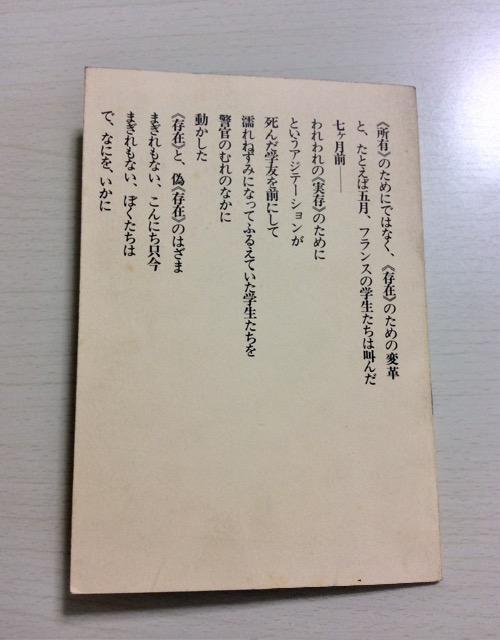 《所有》のためにではなく、《存在》のための変革
と、たとえば五月、フランスの学生たちは叫んだ
七ヶ月前――
われわれの《実存》のために
というアジテーションが
死んだ学友を前にして
濡れねずみになってふるえていた学生たちを
警官のむれのなかに
動かした
《存在》と、偽《存在》のはざま
まぎれもない、こんにち只今
まぎれもない、ぼくたちは
で、なにを、いかに